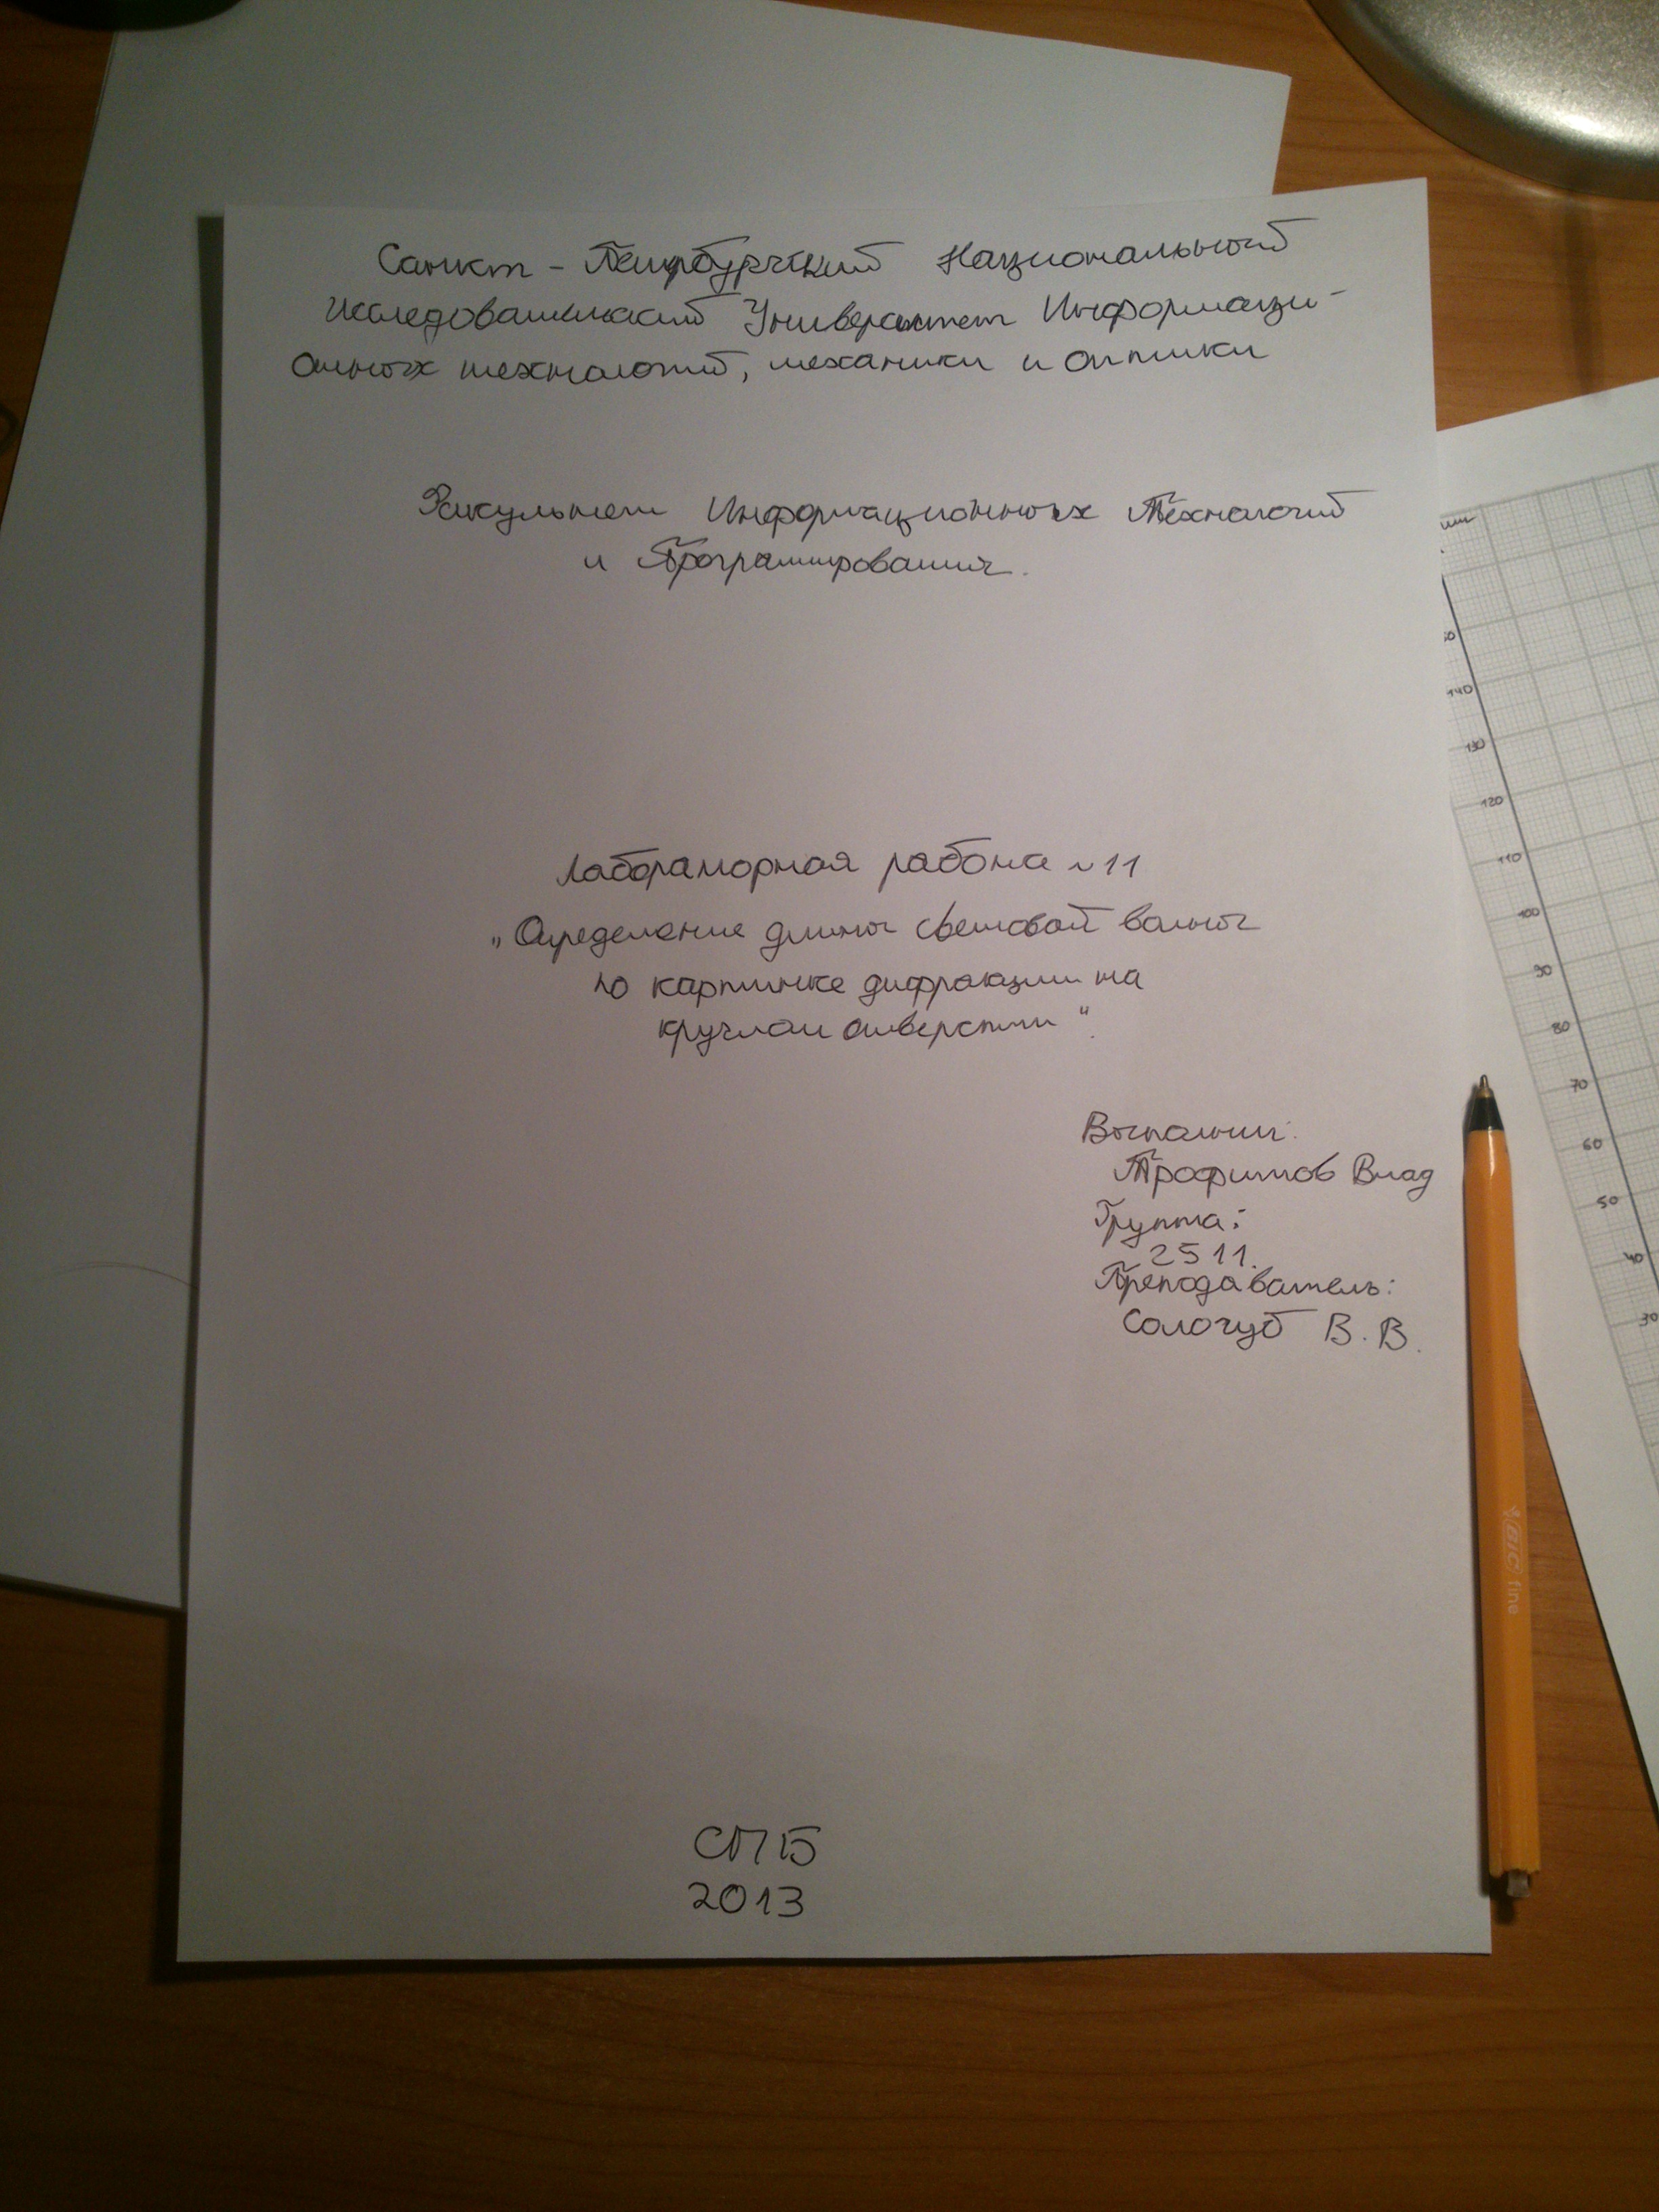 Санкт-Петербургский Национальный
Исследовательский Университет Информаци-
онных технологий, механики и оптики
Факультет Информационных Технологий
и Программирования.
Лабораторная работа №11
„Определение длины световой волны
по картинке дифракции на
круглом отверстии“.
Выполнил:
Трофимов Влад
Группа:
2511.
Преподаватель:
Сологуб В.В.
СПБ
2013
140
130
120
110
100
90
80
70
60
50
40
30
BIC fine